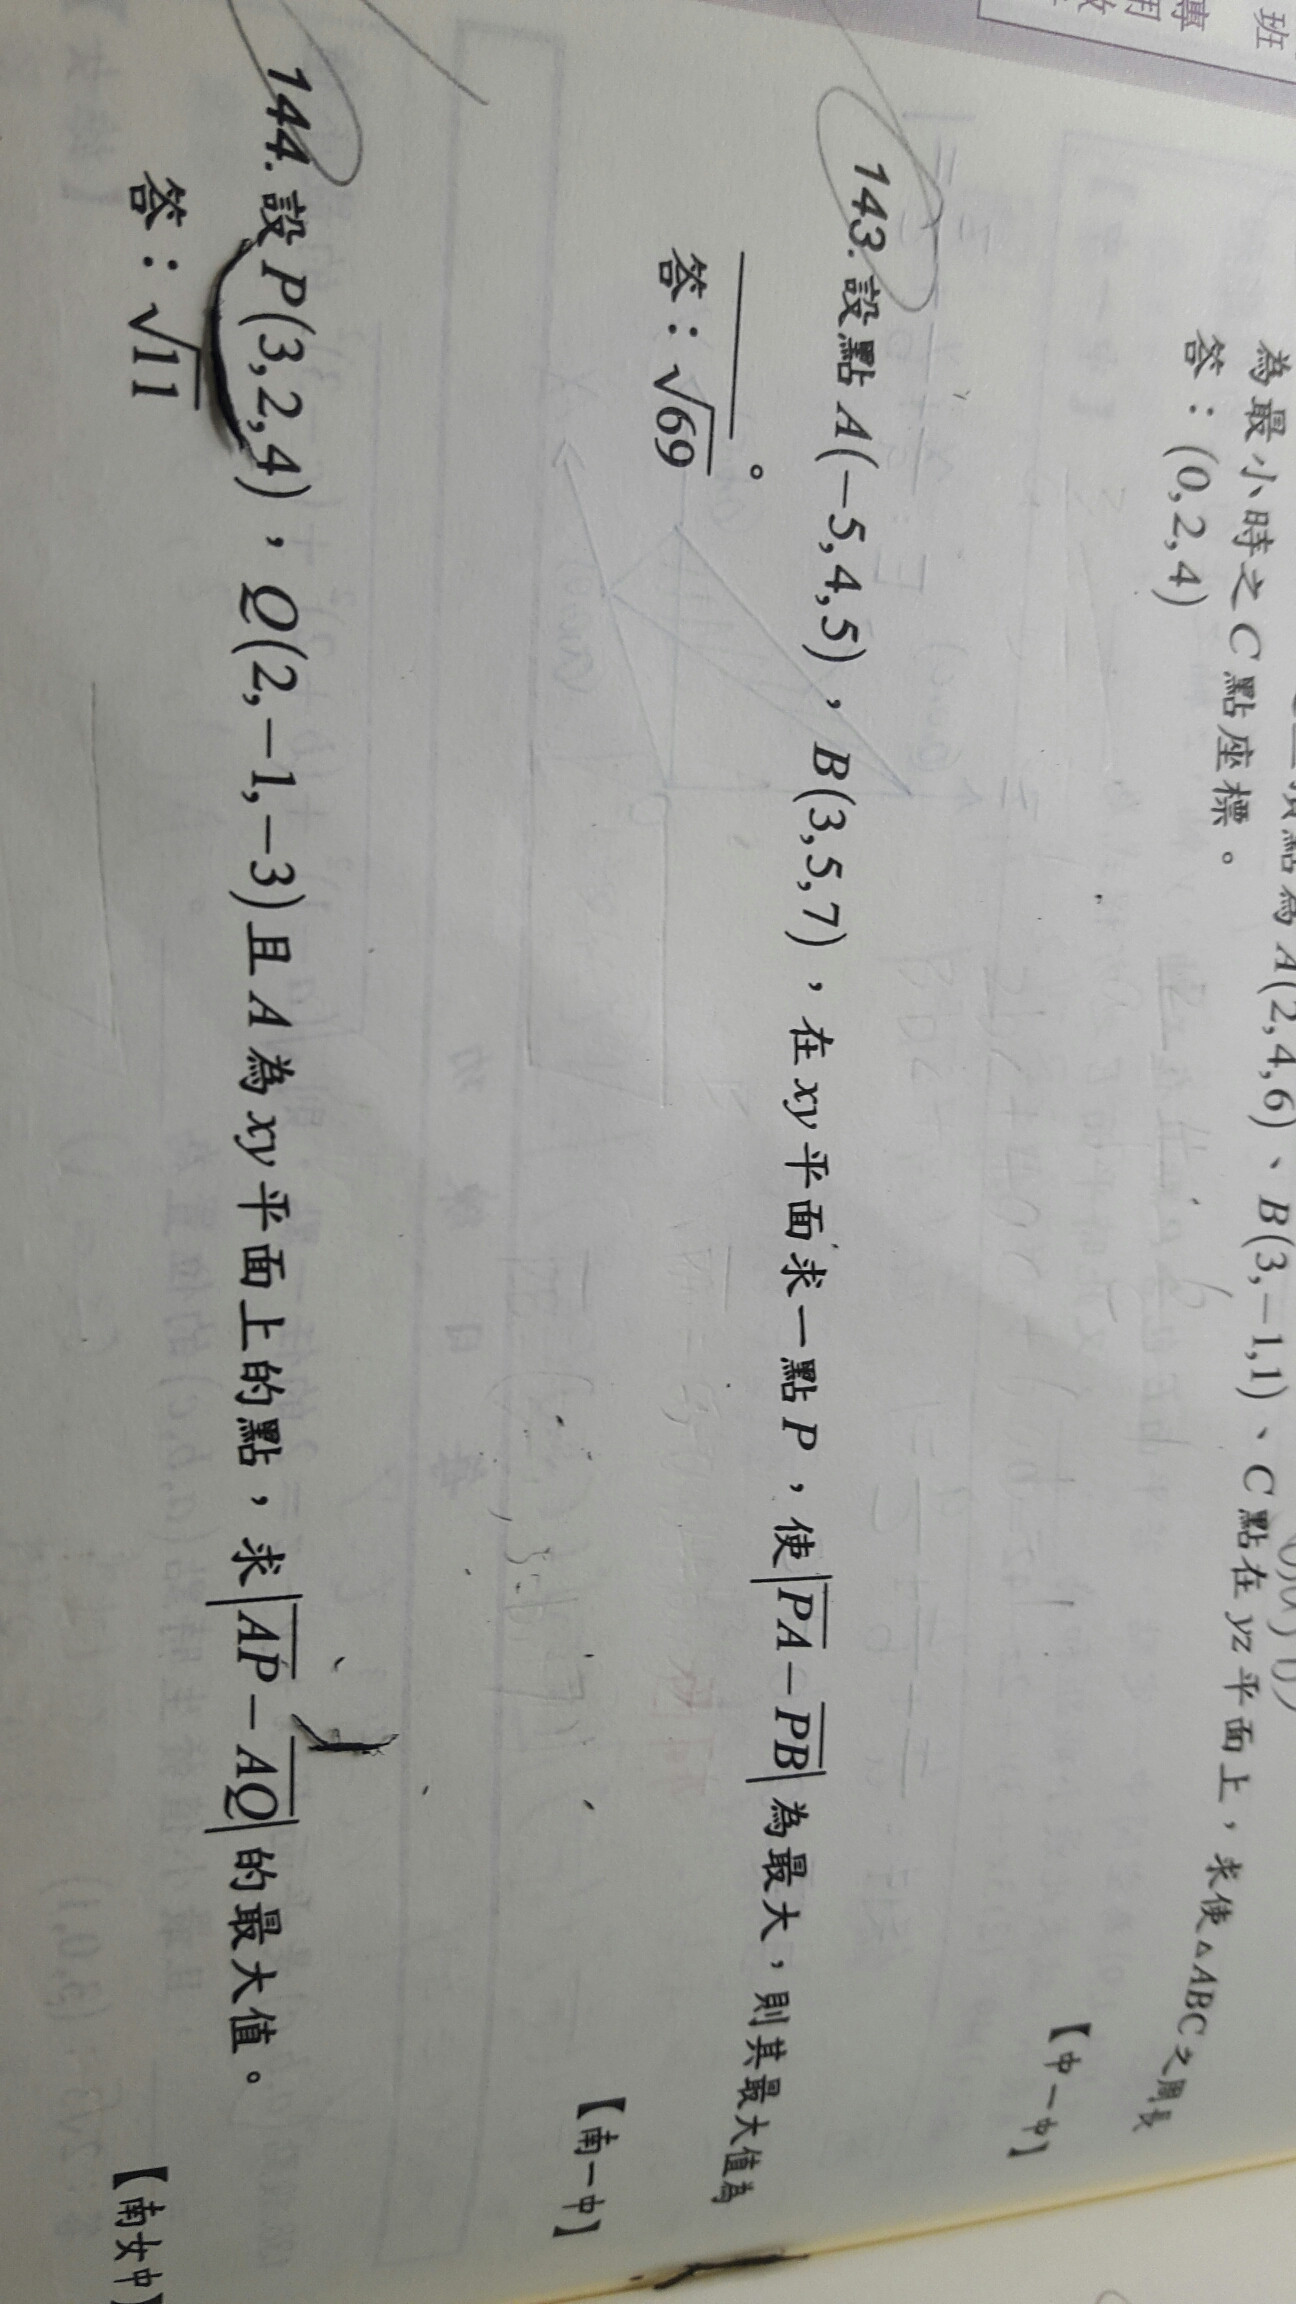 專
用
班
頂點為 A(2,4,6)、B(3,−1,1)、C點在 yz 平面上，求使△ABC之周長
為最小時之 C 點座標。
答：(0,2,4)
【中一中】
143. 設點 A(−5,4,5)，B(3,5,7)，在 xy 平面求一點 P，使|PA−PB|為最大，則其最大值為
。
答：√69
【南一中】
144. 設 P(3,2,4)，Q(2,−1,−3)且 A 為 xy 平面上的點，求|AP−AQ|的最大值。
答：√11
【南女中】